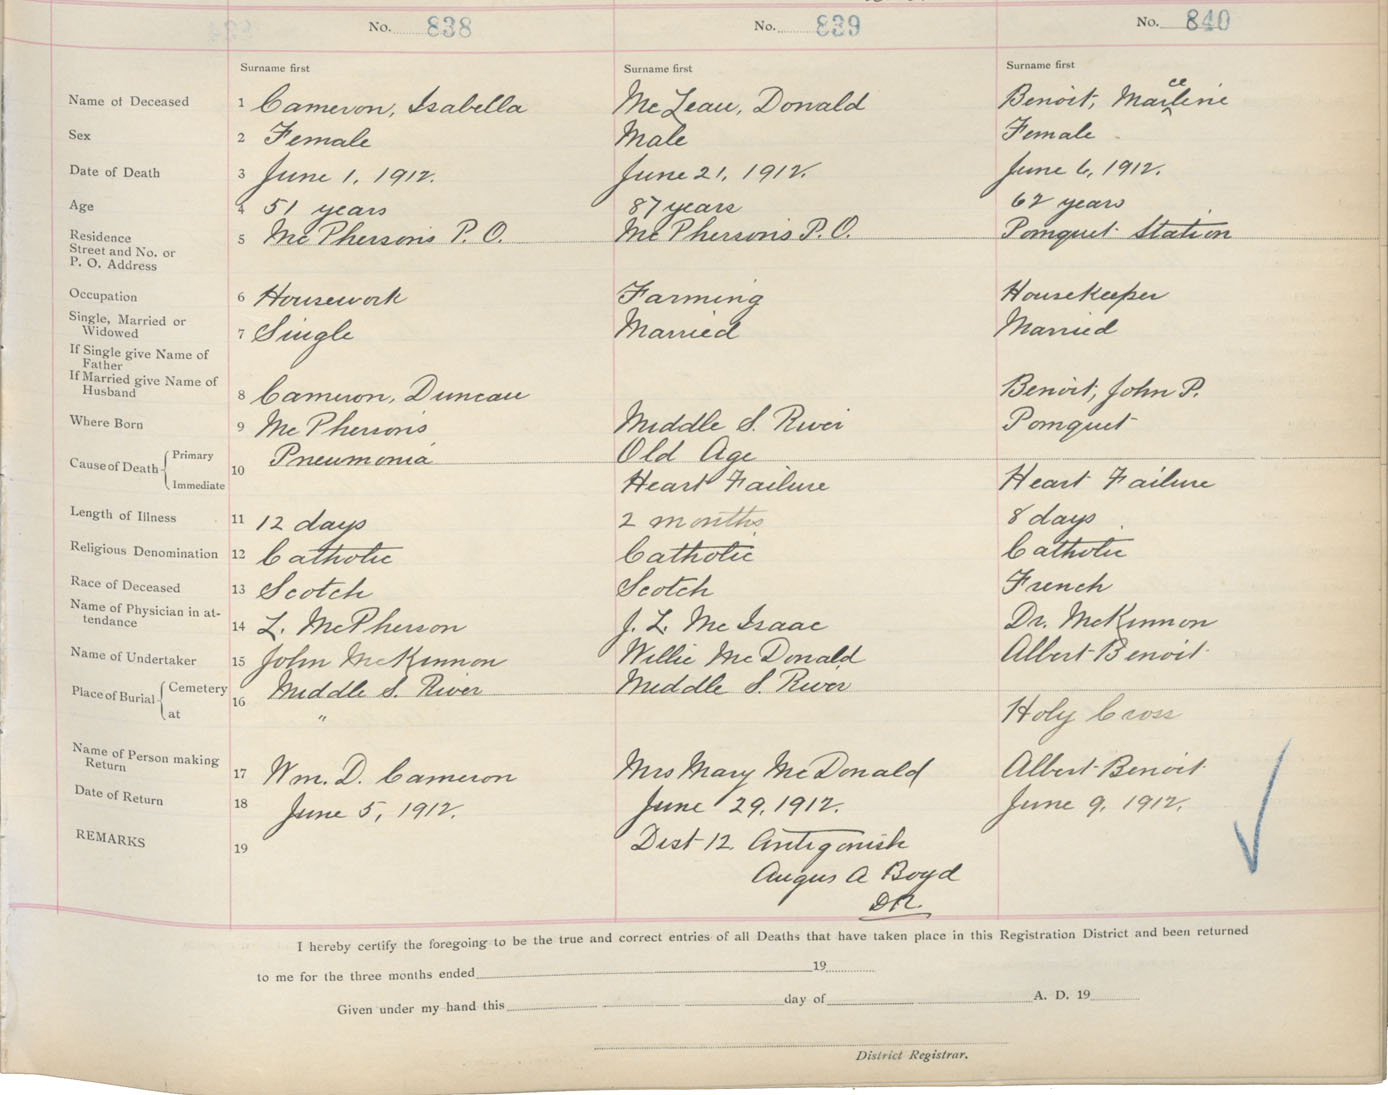 No. 838 No. 839 No. 840
Surname first Surname first Surname first
Name of Deceased 1 Cameron, Isabella McLean, Donald Benoit, Marceline
Sex 2 Female Male Female
Date of Death 3 June 1, 1912. June 21, 1912. June 6, 1912.
Age 4 51 years 87 years 62 years
Residence
Street and No. or
P. O. Address 5 McPhersons P.O. McPhersons P.O. Pomquet Station
Occupation 6 Housework Farming Housekeeper
Single, Married or
Widowed 7 Single Married Married
If Single give Name of
Father
If Married give Name of
Husband 8 Cameron, Duncan Benoit, John P.
Where Born 9 McPhersons Middle S. River Pomquet
Cause of Death Primary 10 Pneumonia Old Age
Immediate Heart Failure Heart Failure
Length of Illness 11 12 days 2 months 8 days
Religious Denomination 12 Catholic Catholic Catholic
Race of Deceased 13 Scotch Scotch French
Name of Physician in at-
tendance 14 L. McPherson J. L. McIsaac Dr. McKinnon
Name of Undertaker 15 John McKinnon Willie McDonald Albert Benoit
Place of Burial Cemetery 16 Middle S. River Middle S. River
at " Holy Cross
Name of Person making
Return 17 Wm. D. Cameron Mrs Mary McDonald Albert Benoit
Date of Return 18 June 5, 1912. June 29, 1912. June 9, 1912.
REMARKS 19 Dist 12 Antigonish
Angus A Boyd
D.R.
I hereby certify the foregoing to be the true and correct entries of all Deaths that have taken place in this Registration District and been returned
to me for the three months ended 19
Given under my hand this day of A. D. 19
District Registrar.